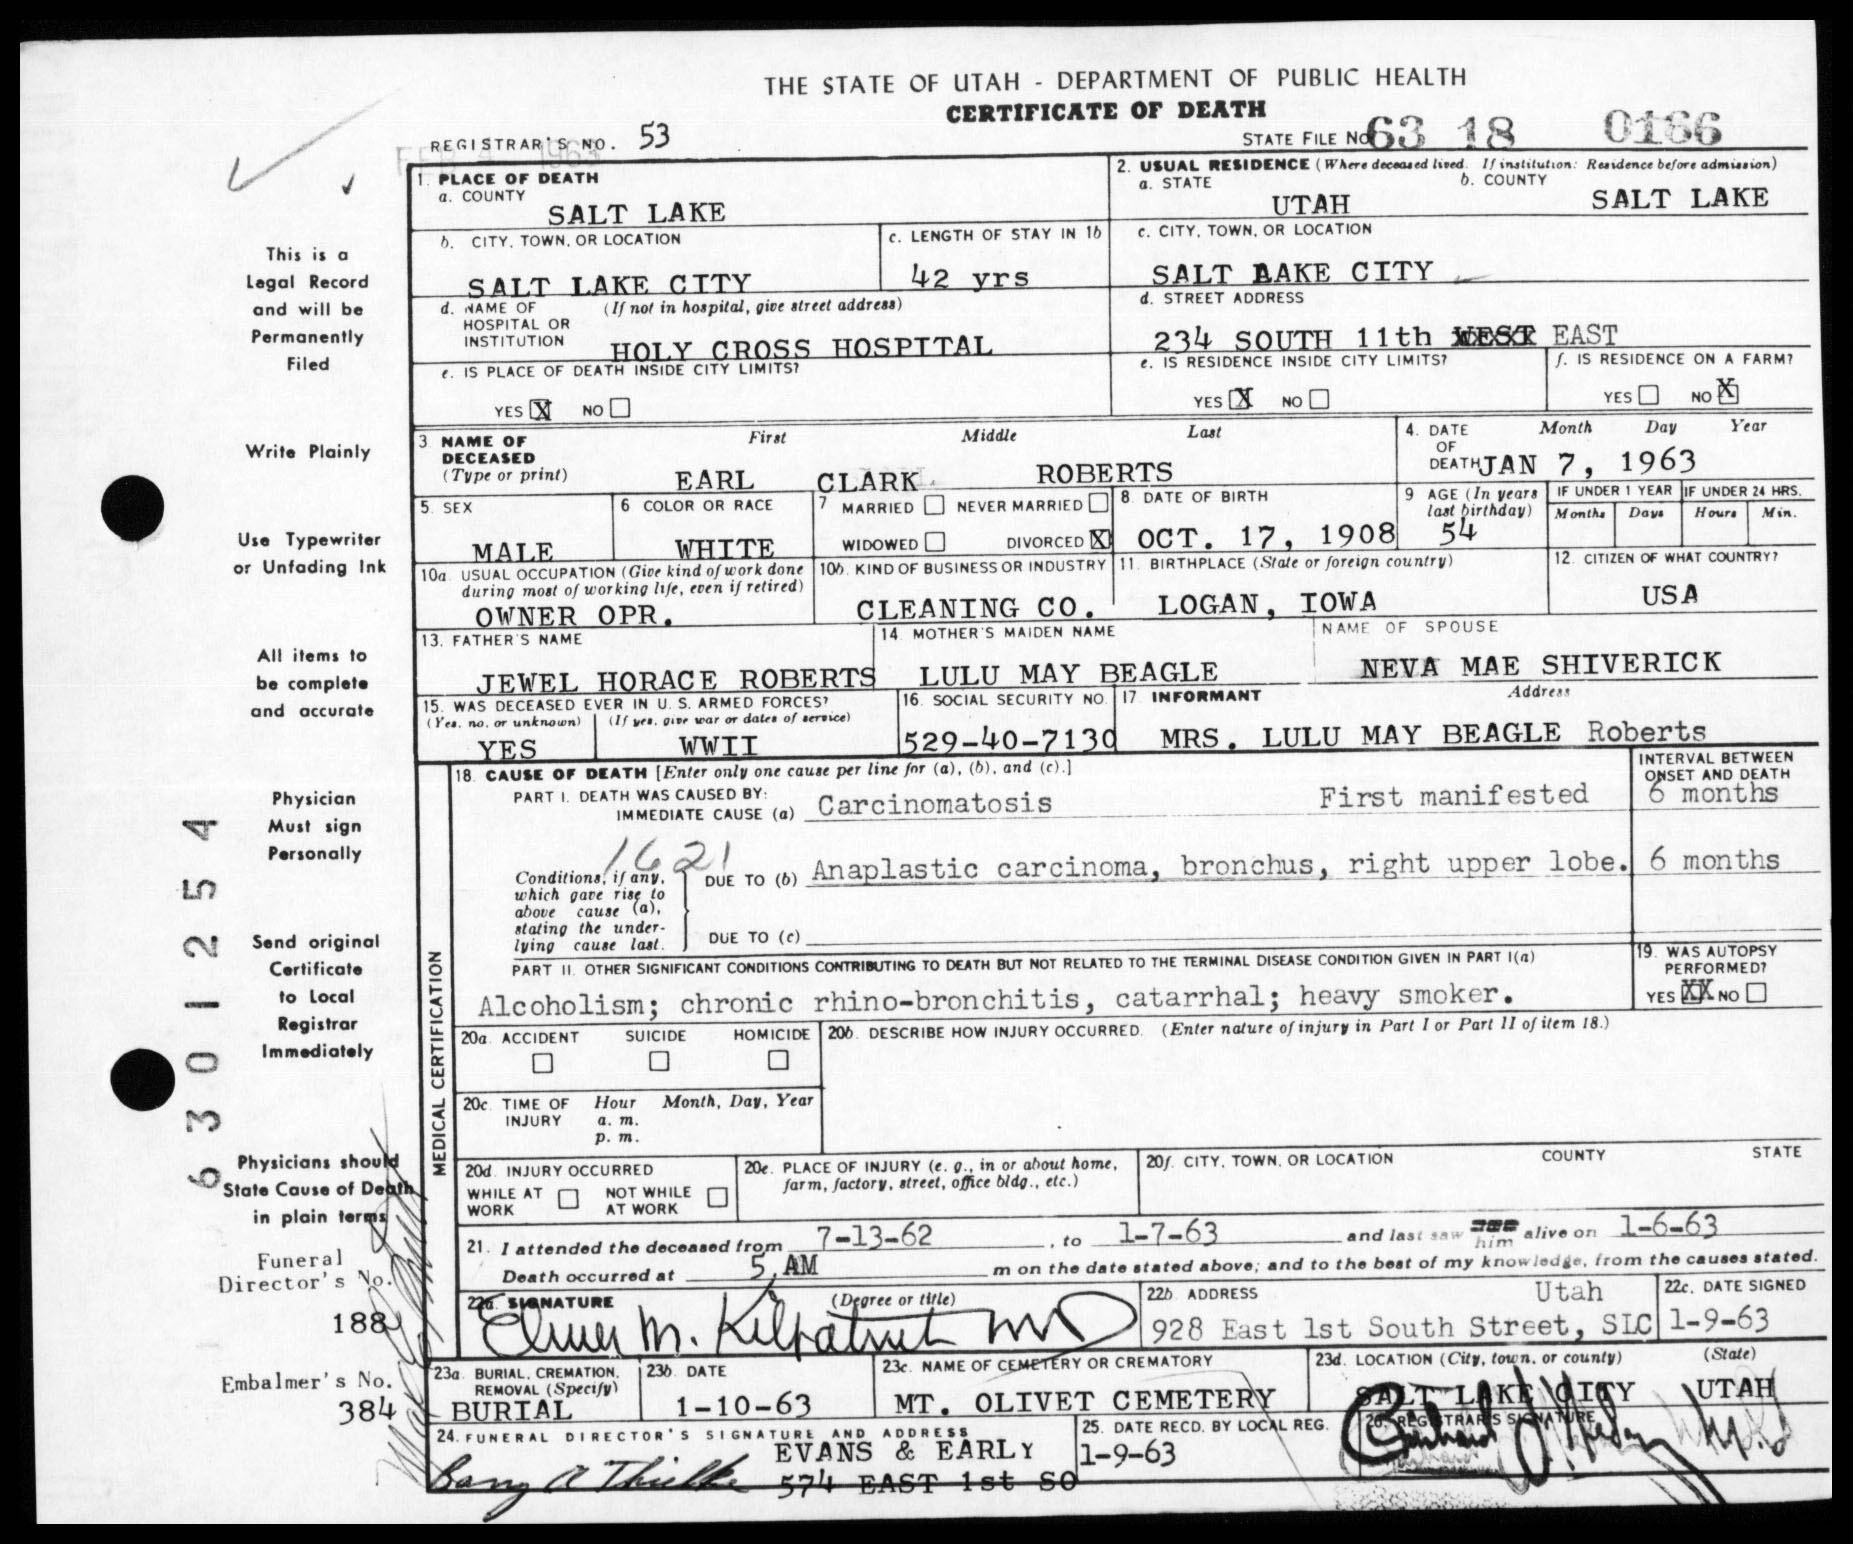 THE STATE OF UTAH - DEPARTMENT OF PUBLIC HEALTH
CERTIFICATE OF DEATH
REGISTRAR'S NO. 53
STATE FILE NO. 63 18 0166
FEB 4 1963
This is a
Legal Record
and will be
Permanently
Filed
Write Plainly
Use Typewriter
or Unfading Ink
All items to
be complete
and accurate
Physician
Must sign
Personally
Send original
Certificate
to Local
Registrar
Immediately
Physicians should
State Cause of Death
in plain terms
Funeral
Director's No.
188
Embalmer's No.
384
6301254
1. PLACE OF DEATH
a. COUNTY
SALT LAKE
2. USUAL RESIDENCE (Where deceased lived. If institution: Residence before admission)
a. STATE UTAH
b. COUNTY SALT LAKE
b. CITY, TOWN, OR LOCATION
SALT LAKE CITY
c. LENGTH OF STAY IN 1b
42 yrs
c. CITY, TOWN, OR LOCATION
SALT LAKE CITY
d. NAME OF HOSPITAL OR INSTITUTION (If not in hospital, give street address)
HOLY CROSS HOSPITAL
d. STREET ADDRESS
234 SOUTH 11th WEST EAST
e. IS PLACE OF DEATH INSIDE CITY LIMITS?
YES X NO
e. IS RESIDENCE INSIDE CITY LIMITS?
YES X NO
f. IS RESIDENCE ON A FARM?
YES NO X
3. NAME OF DECEASED (Type or print)
First Middle Last
EARL CLARK ROBERTS
4. DATE OF DEATH Month Day Year
JAN 7, 1963
5. SEX
MALE
6 COLOR OR RACE
WHITE
7 MARRIED NEVER MARRIED
WIDOWED DIVORCED X
8 DATE OF BIRTH
OCT. 17, 1908
9 AGE (In years last birthday)
54
IF UNDER 1 YEAR
Months Days
IF UNDER 24 HRS.
Hours Min.
10a. USUAL OCCUPATION (Give kind of work done during most of working life, even if retired)
OWNER OPR.
10b. KIND OF BUSINESS OR INDUSTRY
CLEANING CO.
11. BIRTHPLACE (State or foreign country)
LOGAN, IOWA
12. CITIZEN OF WHAT COUNTRY?
USA
13. FATHER'S NAME
JEWEL HORACE ROBERTS
14 MOTHER'S MAIDEN NAME
LULU MAY BEAGLE
NAME OF SPOUSE
NEVA MAE SHIVERICK
15. WAS DECEASED EVER IN U. S. ARMED FORCES?
(Yes, no, or unknown) (If yes, give war or dates of service)
YES WWII
16. SOCIAL SECURITY NO.
529-40-7130
17. INFORMANT Address
MRS. LULU MAY BEAGLE Roberts
MEDICAL CERTIFICATION
18. CAUSE OF DEATH [Enter only one cause per line for (a), (b), and (c).]
INTERVAL BETWEEN ONSET AND DEATH
PART I. DEATH WAS CAUSED BY:
IMMEDIATE CAUSE (a) Carcinomatosis First manifested 6 months
1621
Conditions, if any, which gave rise to above cause (a), stating the underlying cause last.
DUE TO (b) Anaplastic carcinoma, bronchus, right upper lobe. 6 months
DUE TO (c)
PART II. OTHER SIGNIFICANT CONDITIONS CONTRIBUTING TO DEATH BUT NOT RELATED TO THE TERMINAL DISEASE CONDITION GIVEN IN PART I(a)
Alcoholism; chronic rhino-bronchitis, catarrhal; heavy smoker.
19. WAS AUTOPSY PERFORMED?
YES XX NO
20a. ACCIDENT SUICIDE HOMICIDE
20b. DESCRIBE HOW INJURY OCCURRED. (Enter nature of injury in Part I or Part II of item 18.)
20c. TIME OF INJURY Hour Month, Day, Year
a. m.
p. m.
20d. INJURY OCCURRED
WHILE AT WORK NOT WHILE AT WORK
20e. PLACE OF INJURY (e. g., in or about home, farm, factory, street, office bldg., etc.)
20f. CITY, TOWN, OR LOCATION COUNTY STATE
21. I attended the deceased from 7-13-62, to 1-7-63 and last saw him alive on 1-6-63
Death occurred at 5 AM m on the date stated above; and to the best of my knowledge, from the causes stated.
22a. SIGNATURE (Degree or title)
Elmer M. Kilpatrick MD
22b. ADDRESS
Utah
928 East 1st South Street, SLC
22c. DATE SIGNED
1-9-63
23a. BURIAL, CREMATION, REMOVAL (Specify)
BURIAL
23b. DATE
1-10-63
23c. NAME OF CEMETERY OR CREMATORY
MT. OLIVET CEMETERY
23d. LOCATION (City, town, or county) (State)
SALT LAKE CITY UTAH
24. FUNERAL DIRECTOR'S SIGNATURE AND ADDRESS
EVANS & EARLY
574 EAST 1st SO
25. DATE RECD. BY LOCAL REG.
1-9-63
26. REGISTRAR'S SIGNATURE